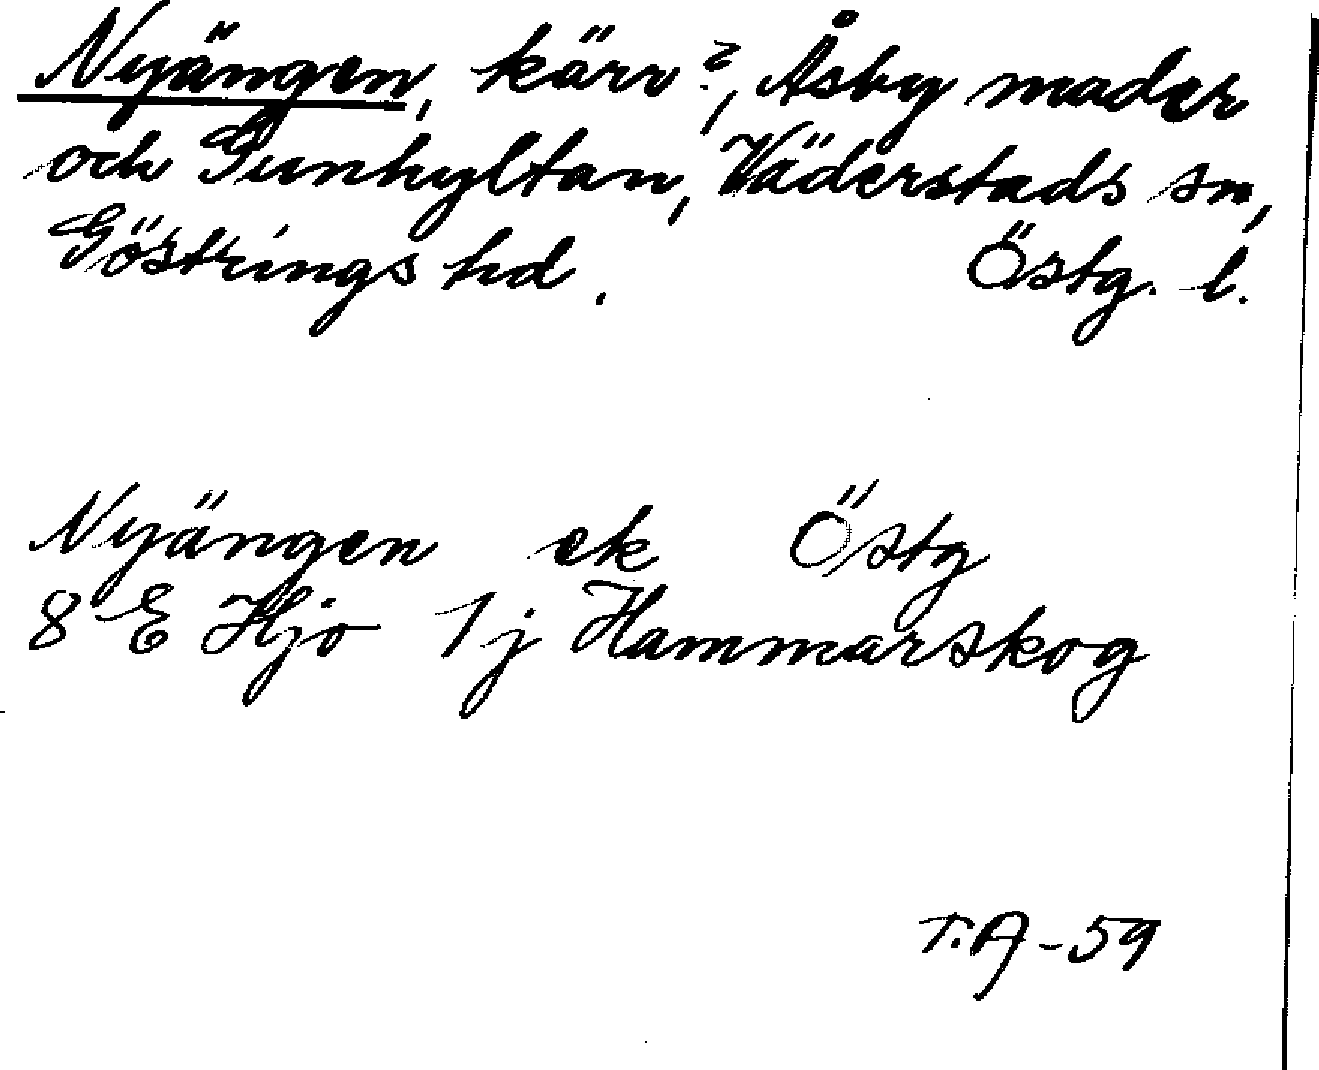 Nyängen, kärr?, Åsby mader
och Gunhyltan, Väderstads sn,
Göstrings hd. Östg. l.
Nyängen ek Östg
8 E Hjo 1j Hammarskog
T.A-59